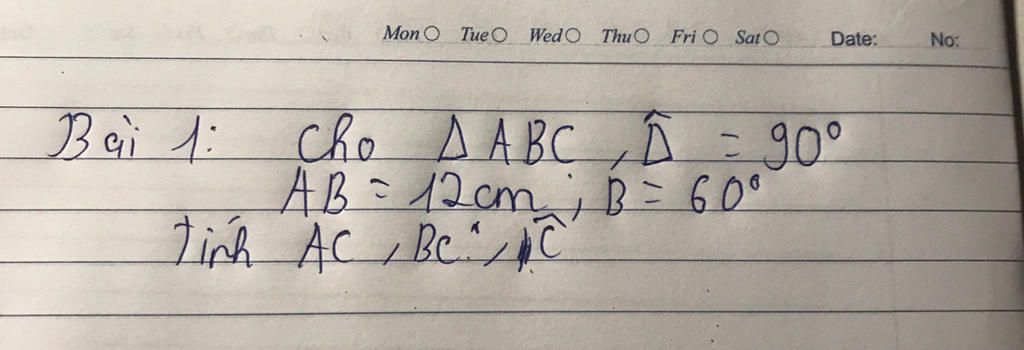 Mon Tue Wed Thu Fri Sat Date: No:
Bài 1: Cho Δ ABC, D̂ = 90°
AB = 12cm; B = 60°
Tính AC, BC, Ĉ